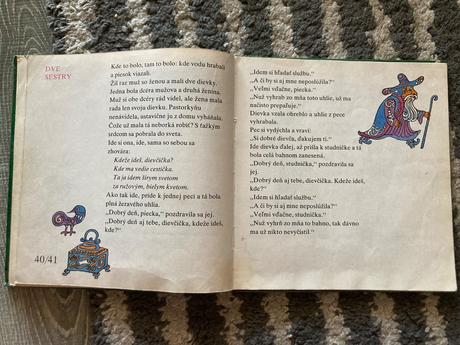 DVE
SESTRY
Kde to bolo, tam to bolo: kde vodu hrabali
a piesok viazali.
Žil raz muž so ženou a mali dve dievky.
Jedna bola dcéra mužova a druhá ženina.
Muž si obe dcéry rád videl, ale žena mala
rada len svoju dievku. Pastorkyňu
nenávidela, ustavične ju z domu vyháňala.
Čože už mala tá neborká robiť? S ťažkým
srdcom sa pobrala do sveta.
Ide si ona, ide, sama so sebou sa
zhovára:
Kdeže ideš, dievčička?
Kde ma vedie cestička.
Ta ja idem šírym svetom
za ružovým, bielym kvetom.
Ako tak ide, príde k jednej peci a tá bola
plná žeravého uhlia.
„Dobrý deň, piecka,“ pozdravila sa jej.
„Dobrý deň aj tebe, dievčička, kdeže ideš,
kde?“
40/41
„Idem si hľadať službu.“
„A či by si aj mne neposlúžila?“
„Veľmi vďačne, piecka.“
„Nuž vyhrab zo mňa toto uhlie, už ma
načisto prepaľuje.“
Dievka vzala ohreblo a uhlie z pece
vyhrabala.
Pec si vydýchla a vraví:
„Si dobré dievča, ďakujem ti.“
Ide dievka ďalej, až prišla k studničke a tá
bola celá bahnom zanesená.
„Dobrý deň, studnička,“ pozdravila sa
jej.
„Dobrý deň aj tebe, dievčička. Kdeže ideš,
kde?“
„Idem si hľadať službu.“
„A či by si aj mne neposlúžila?“
„Veľmi vďačne, studnička.“
„Nuž vyhŕň zo mňa to bahno, tak dávno
ma už nikto nevyčistil.“